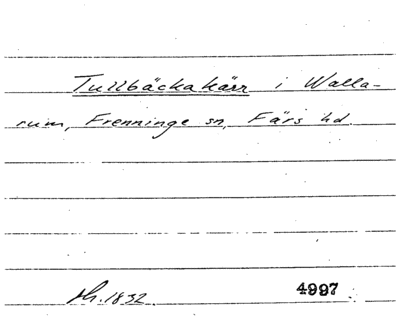 Tullbäckakärr i Walla-
rum, Frenninge sn, Färs hd.
sk. 1832. 4997